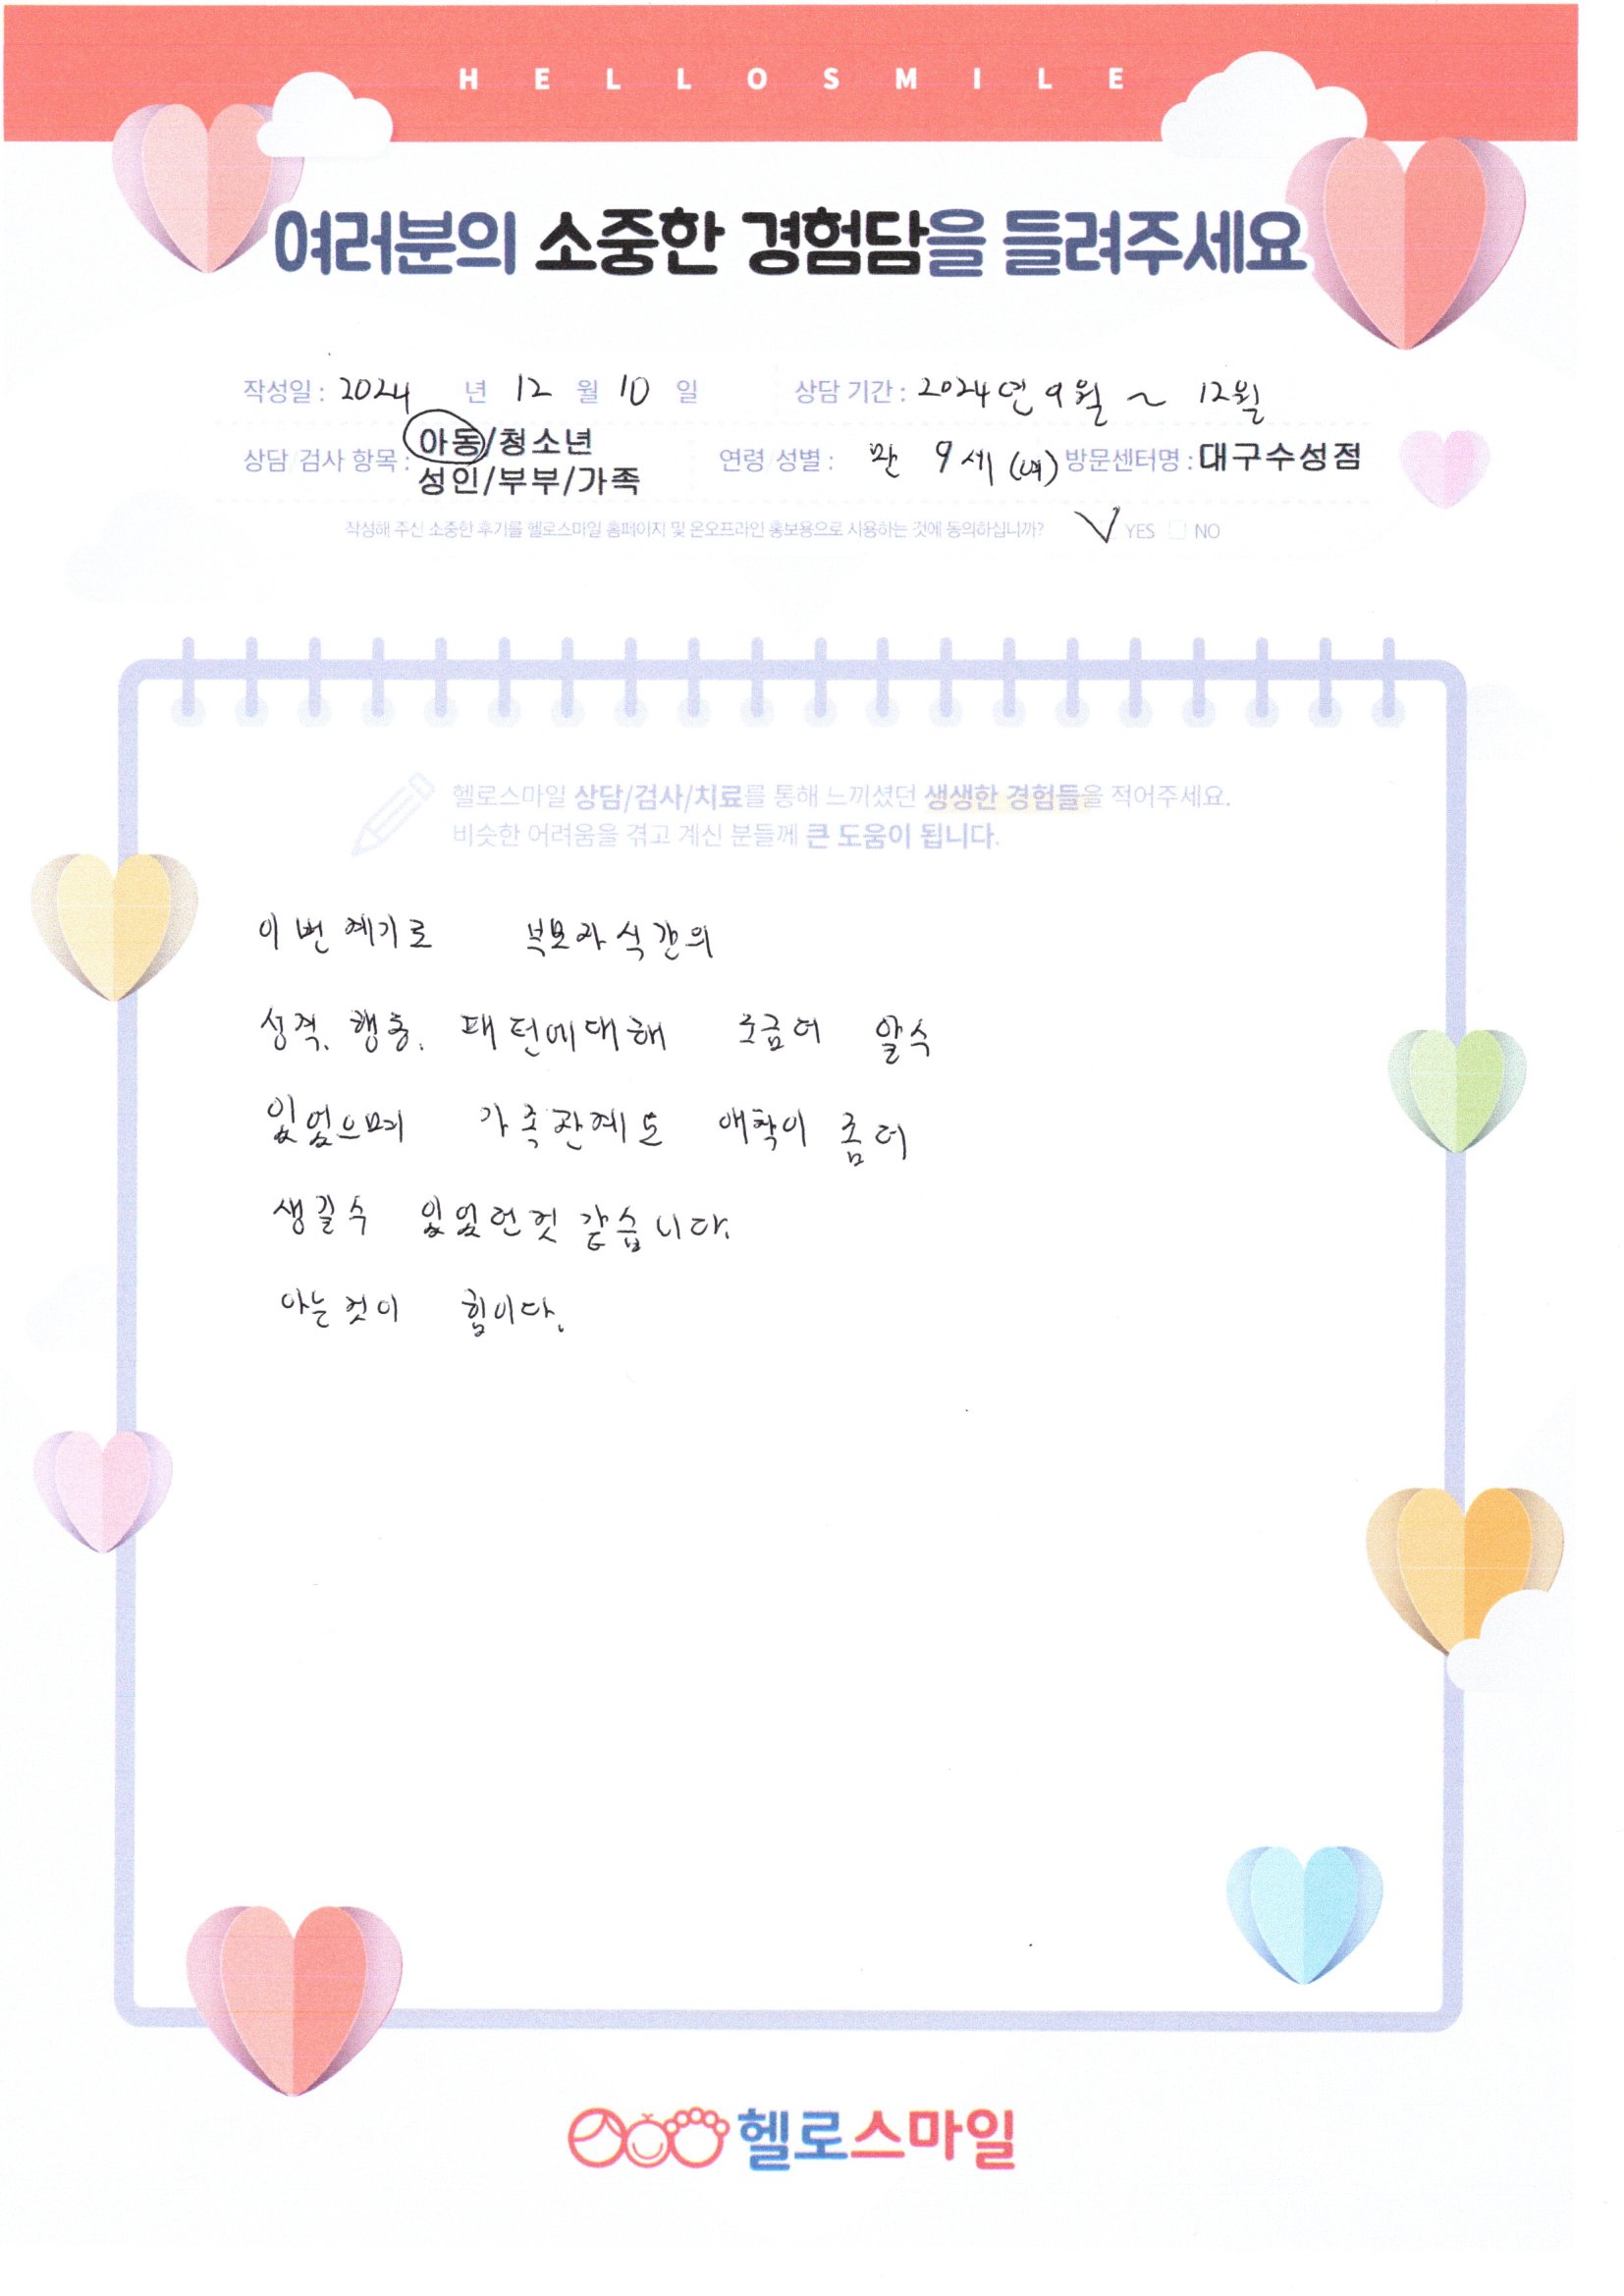 HELLOSMILE
여러분의 소중한 경험담을 들려주세요
작성일 : 2024 년 12 월 10 일 상담 기간 : 2024년 9월 ~ 12월
상담 검사 항목 : 아동/청소년
성인/부부/가족
연령 성별 : 만 9세 (여) 방문센터명 : 대구수성점
작성해 주신 소중한 후기를 헬로스마일 홈페이지 및 온오프라인 홍보용으로 사용하는 것에 동의하십니까? V YES NO
헬로스마일 상담/검사/치료를 통해 느끼셨던 생생한 경험들을 적어주세요.
비슷한 어려움을 겪고 계신 분들께 큰 도움이 됩니다.
이번 계기로 부모자식간의
성격, 행동, 패턴에대해 조금더 알수
있었으며 가족관계도 애착이 좀더
생길수 있었던것 같습니다.
아는것이 힘이다.
헬로스마일